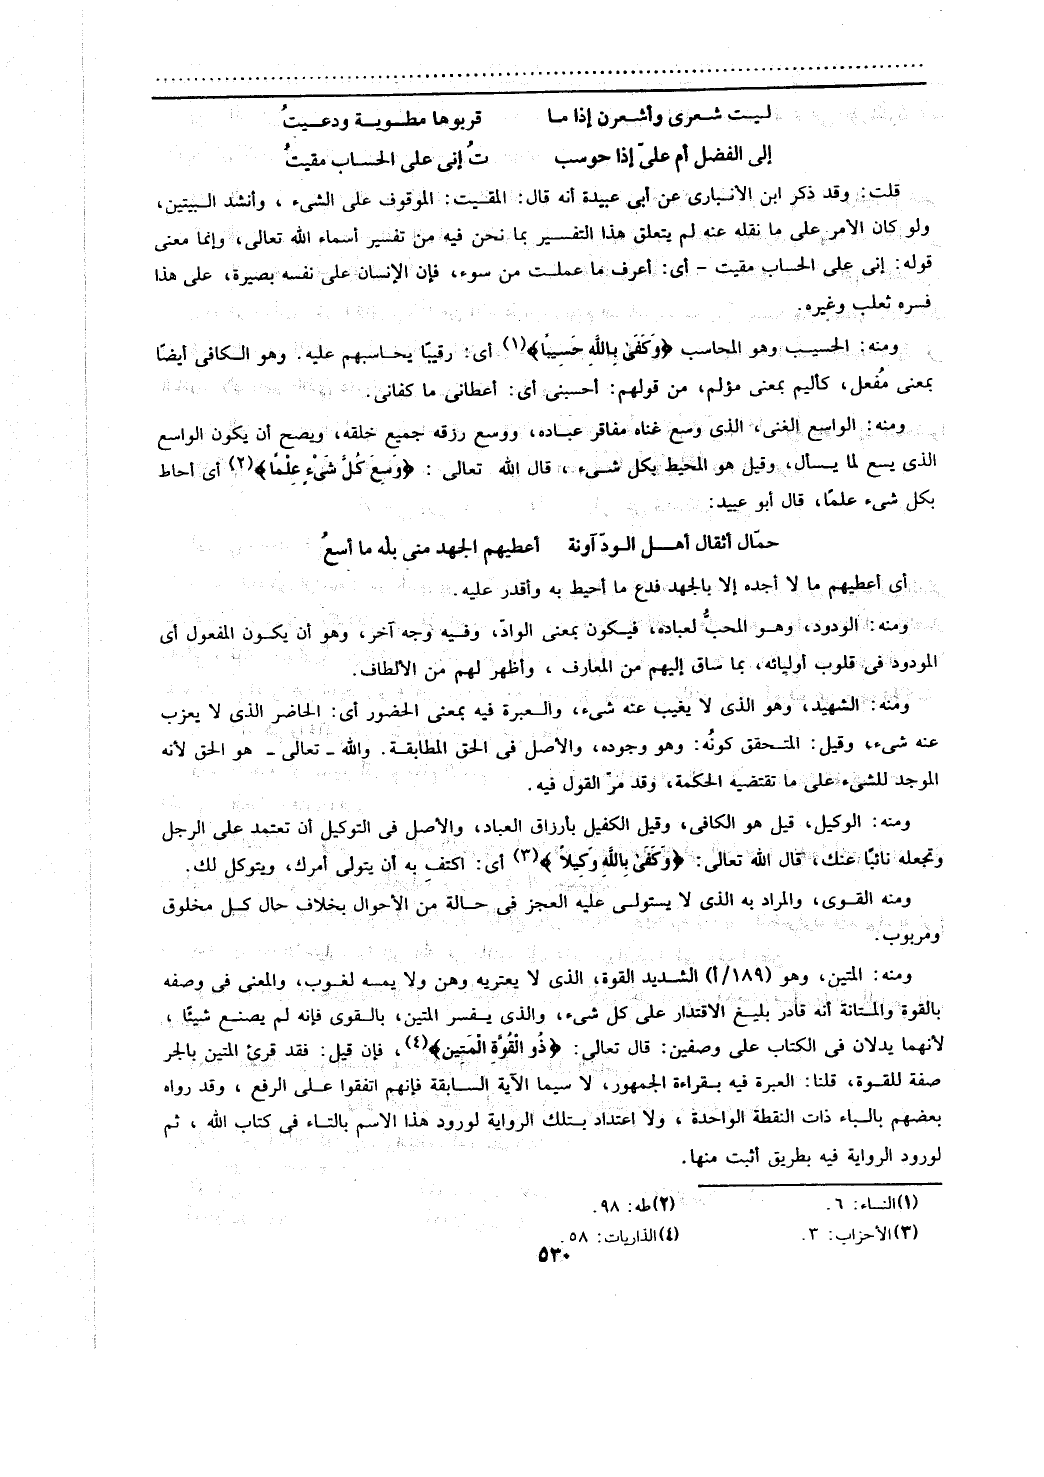 ليت شعرى وأشعرن إذا ما قربوها مطويـة ودعـيتُ
إلى الفضل أم علىّ إذا حوسب تُ إنى على الحساب مقيتُ
قلت: وقد ذكر ابن الانبارى عن أبى عبيدة أنه قال: المقيت: الموقوف على الشىء ، وأنشد البيتين،
ولو كان الامر على ما نقله عنه لم يتعلق هذا التفسير بما نحن فيه من تفسير أسماء الله تعالى، وإنما معنى
قوله: إنى على الحساب مقيت – أى: أعرف ما عملت من سوء، فإن الإنسان على نفسه بصيرة، على هذا
فسره ثعلب وغيره.
ومنه: الحسيب وهو المحاسب ﴿وَكَفَىٰ بِاللَّهِ حَسِيبًا﴾(١) أى: رقيبًا يحاسبهم عليه. وهو الكافى أيضًا
بمعنى مُفعل، كأليم بمعنى مؤلم، من قولهم: أحسبنى أى: أعطانى ما كفانى.
ومنه: الواسع الغنى، الذى وسع غناه مفاقر عباده، ووسع رزقه جميع خلقه، ويصح أن يكون الواسع
الذى يسع لما يسأل، وقيل هو المحيط بكل شىء ، قال الله تعالى : ﴿وَسِعَ كُلَّ شَيْءٍ عِلْمًا﴾(٢) أى أحاط
بكل شىء علمًا، قال أبو عبيد:
حمّال أثقال أهـل الـودّ آونة أعطيهم الجهد منى بلْه ما أسعُ
أى أعطيهم ما لا أجده إلا بالجهد فدع ما أحيط به وأقدر عليه.
ومنه: الودود، وهو المحبُّ لعباده، فيكون بمعنى الوادّ، وفيه وجه آخر، وهو أن يكون المفعول أى
المودود فى قلوب أوليائه، بما ساق إليهم من المعارف ، وأظهر لهم من الألطاف.
ومنه: الشهيد، وهو الذى لا يغيب عنه شىء، والعبرة فيه بمعنى الحضور أى: الحاضر الذى لا يعزب
عنه شىء، وقيل: المتحقق كونُه: وهو وجوده، والأصل فى الحق المطابقة. والله ـ تعالى ـ هو الحق لأنه
الموجد للشىء على ما تقتضيه الحكمة، وقد مرّ القول فيه.
ومنه: الوكيل، قيل هو الكافى، وقيل الكفيل بأرزاق العباد، والأصل فى التوكيل أن تعتمد على الرجل
وتجعله نائبًا عنك، قال الله تعالى: ﴿وَكَفَىٰ بِاللَّهِ وَكِيلاً ﴾(٣) أى: اكتفِ به أن يتولى أمرك، ويتوكل لك.
ومنه القوى، والمراد به الذى لا يستولى عليه العجز فى حالة من الأحوال بخلاف حال كل مخلوق
ومربوب.
ومنه: المتين، وهو (١٨٩/أ) الشديد القوة، الذى لا يعتريه وهن ولا يمسه لغوب، والمعنى فى وصفه
بالقوة والمتانة أنه قادر بليغ الاقتدار على كل شىء، والذى يفسر المتين، بالقوى فإنه لم يصنع شيئًا ،
لأنهما يدلان فى الكتاب على وصفين: قال تعالى: ﴿ذُو الْقُوَّةِ الْمَتِين﴾(٤)، فإن قيل: فقد قرئ المتين بالجر
صفة للقوة، قلنا: العبرة فيه بقراءة الجمهور، لا سيما الآية السابقة فإنهم اتفقوا على الرفع ، وقد رواه
بعضهم بالباء ذات النقطة الواحدة ، ولا اعتداد بتلك الرواية لورود هذا الاسم بالتاء فى كتاب الله ، ثم
لورود الرواية فيه بطريق أثبت منها.
(١)النساء: ٦. (٢)طه: ٩٨.
(٣)الأحزاب: ٣. (٤)الذاريات: ٥٨.
٥٣٠